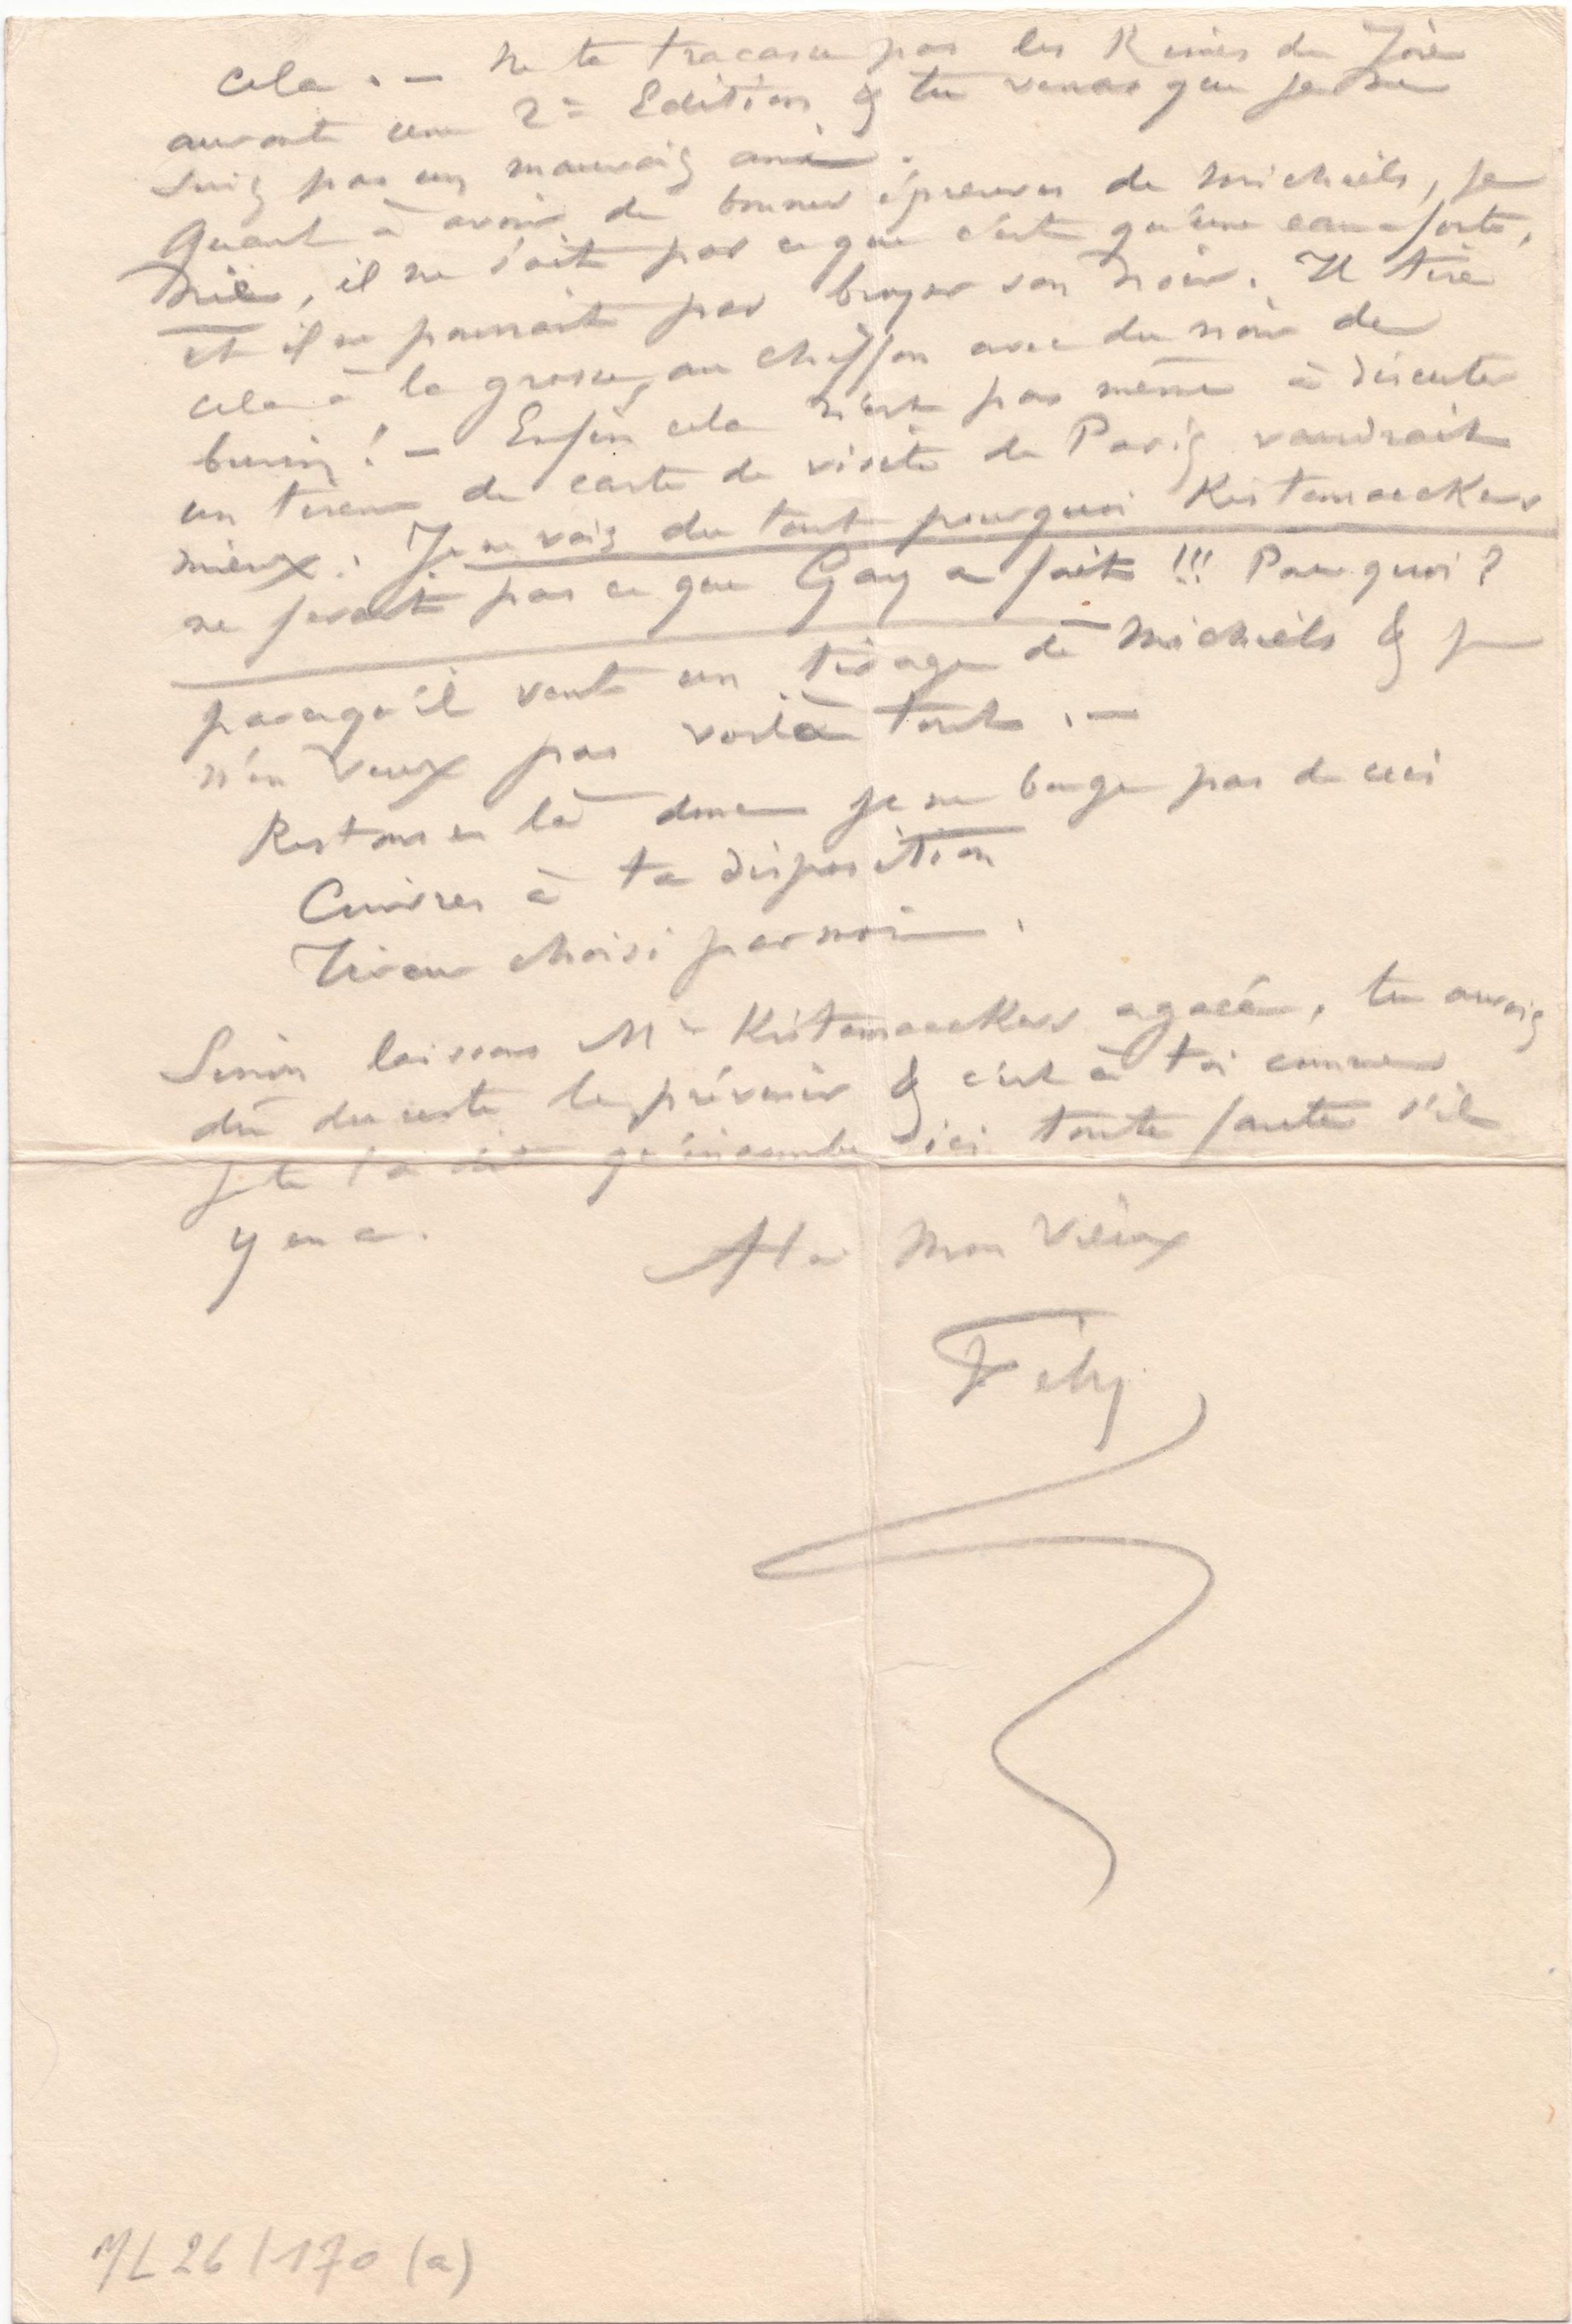 cela. — Ne te tracasse pas les Reines de Joie
auront une 2= Edition & tu verras que je ne
suis pas un mauvais ami.
Quant à avoir de bonnes épreuves de Michiels, je
nie, il ne sait pas ce que c'est qu'une eau-forte,
et il ne pourrait pas broyer son noir. Il tire
cela à la grosse, au chiffon avec du noir de
burin! — Enfin cela n'est pas même à discuter
un tireur de carte de visite de Paris vaudrait
mieux. Je ne vois du tout pourquoi Kistemaeckers
ne ferait pas ce que Gay a fait!!! Pourquoi?
parcequ'il veut un tirage de Michiels & je
n'en veux pas voilà tout. —
Restons en là donc je ne bouge pas de ceci
Cuivres à ta disposition
Tireur choisi par moi.
Sinon laissons Mr Kistemaeckers agacé, tu aurais
dû du reste le prévenir & c'est à toi comme
je te l'ai dit qu'incombe ici toute faute s'il
y en a.
A toi mon Vieux
Fély
ML 26/170 (a)